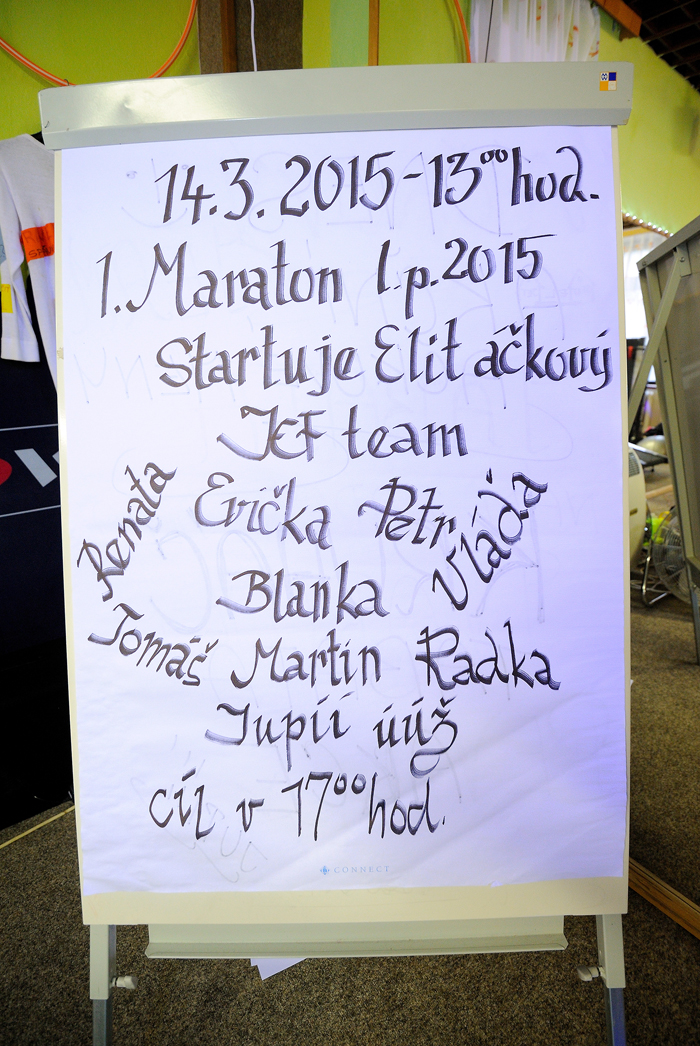 14.3. 2015 - 13⁰⁰ hod.
1. Maraton l.p. 2015
Startuje Elitáčkový
JEF team
Renata
Evička Petr
Vláďa
Blanka
Tomáš Martin Radka
Jupíí úúž
cíl v 17⁰⁰ hod.
CONNECT